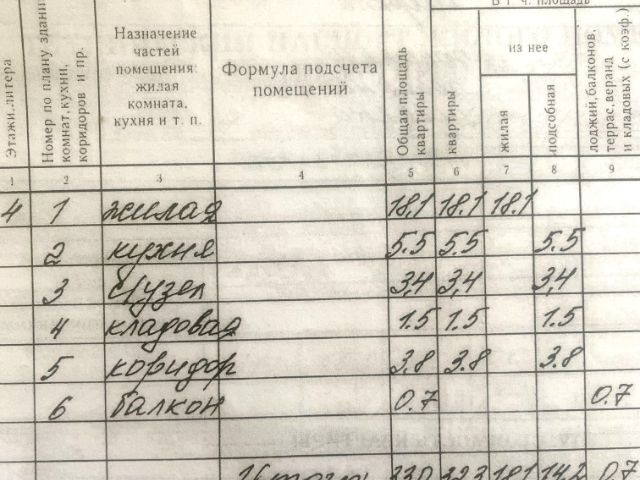 в т. ч. площадь
Этажи, литера
Номер по плану здания
комнат, кухни,
коридоров и пр.
Назначение
частей
помещения:
жилая
комната,
кухня и т. п.
Формула подсчета
помещений
Общая площадь
квартиры
квартиры
из нее
жилая
подсобная
лоджий, балконов,
террас, веранд
и кладовых (с коэф.)
1 2 3 4 5 6 7 8 9
4 1 жилая 18,1 18.1 18.1
2 кухня 5.5 5.5 5.5
3 с/узел 3,4 3,4 3,4
4 кладовая 1.5 1.5 1.5
5 коридор 3.8 3.8 3.8
6 балкон 0.7 0.7
Итого 330 323 181 14,2 0.7